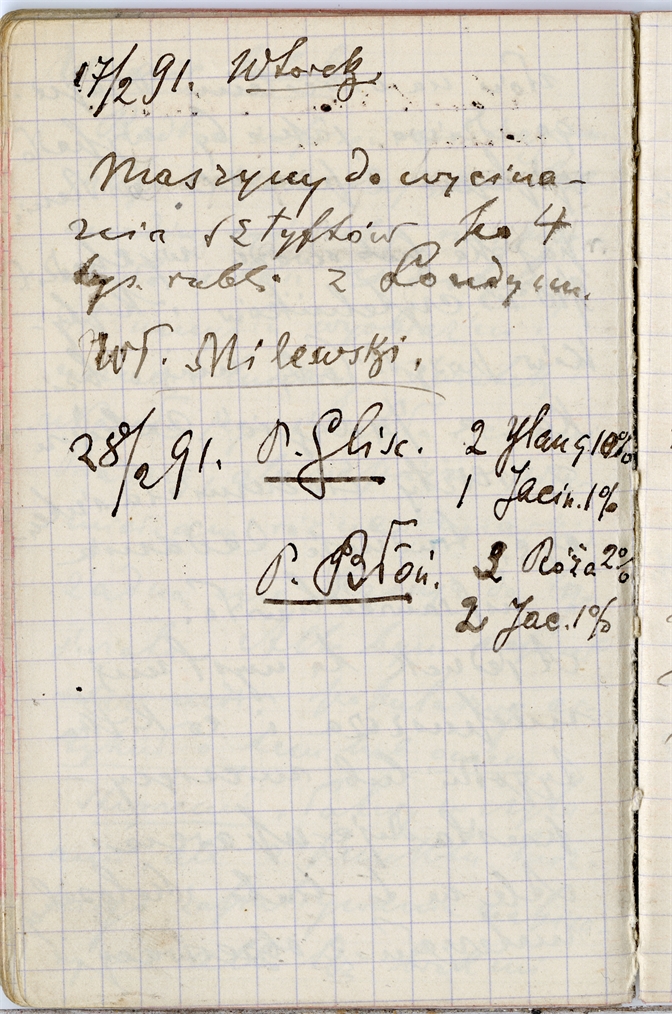 17/2 91. Wtorek.
Maszyny do wycina-
nia sztyftów po 4
tys. rubl. z Londynu.
Wł. Milewski.
28/2 91. P. Glisc. 2 Ylang 10%
1 Jacin. 1%
P. Błoń. 2 Róża 2%
2 Jac. 1%